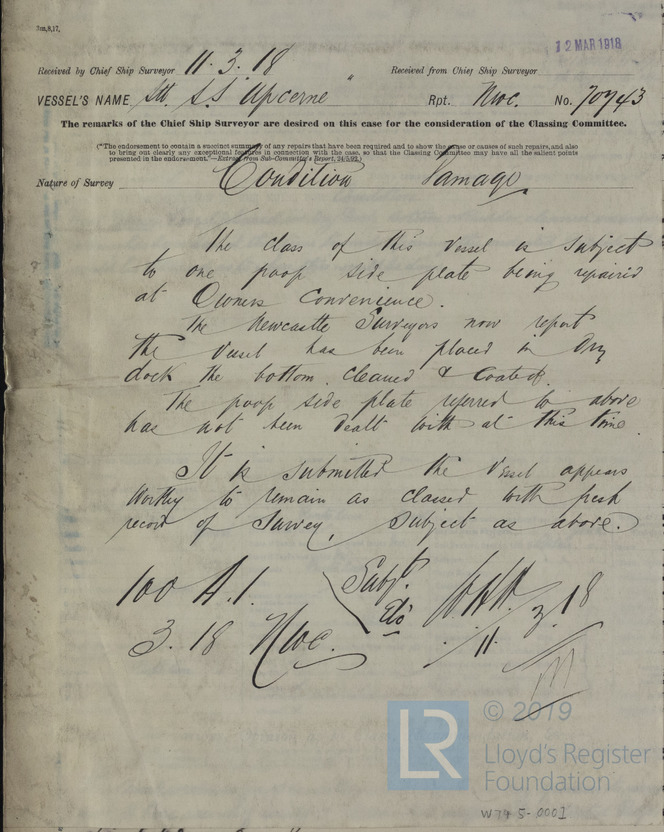 12 MAR 1918
Received by Chief Ship Surveyor 11.3.18 Received from Chief Ship Surveyor
VESSEL'S NAME S.S. Upcerne Rpt. Nwc. No. 70743
The remarks of the Chief Ship Surveyor are desired on this case for the consideration of the Classing Committee.
("The endorsement to contain a succinct summary of any repairs that have been required and to show the cause or causes of such repairs, and also
to bring out clearly any exceptional features in connection with the case, so that the Classing Committee may have all the salient points
presented in the endorsement."—Extract from Sub-Committee's Report, 24/5/92.)
Nature of Survey Condition Damage
The class of this vessel is subject
to one poop side plate being repaired
at Owners Convenience.
The Newcastle Surveyors now report
the vessel has been placed in dry
dock the bottom cleaned & coated.
The poop side plate referred to above
has not been dealt with at this time.
It is submitted the vessel appears
worthy to remain as classed with fresh
record of Survey, subject as above.
100 A.1. Subjt.
3.18 Nwc. 11.3.18
© 2019
LR
Lloyd's Register
Foundation
W745-0001